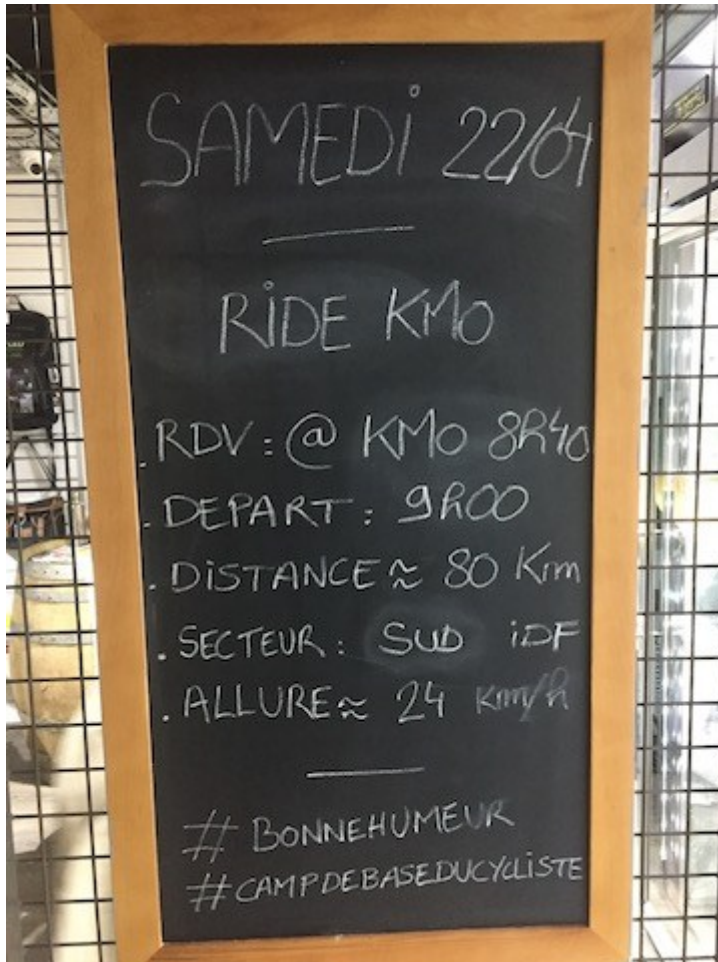 SAMEDi 22/04
RiDE KM0
. RDV : @ KM0 8h40
. DEPART : 9h00
. DiSTANCE ≈ 80 Km
. SECTEUR : SUD iDF
. ALLURE ≈ 24 Km/h
# BONNEHUMEUR
#CAMPDEBASEDUCYCLiSTE